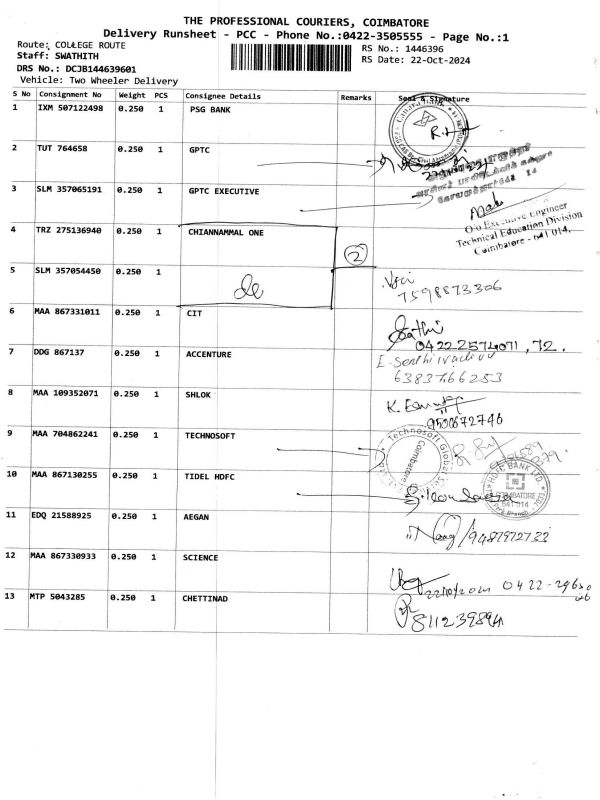 THE PROFESSIONAL COURIERS, COIMBATORE
Delivery Runsheet - PCC - Phone No.:0422-3505555 - Page No.:1
Route: COLLEGE ROUTE
RS No.: 1446396
Staff: SWATHITH
RS Date: 22-Oct-2024
DRS No.: DCJB144639601
Vehicle: Two Wheeler Delivery
S No Consignment No Weight PCS Consignee Details Remarks Seal & Signature
1 IXM 507122498 0.250 1 PSG BANK
2 TUT 764658 0.250 1 GPTC
3 SLM 357065191 0.250 1 GPTC EXECUTIVE
O/o Executive Engineer
Technical Education Division
Coimbatore - 641 014.
4 TRZ 275136940 0.250 1 CHIANNAMMAL ONE
2
5 SLM 357054450 0.250 1
7598873306
6 MAA 867331011 0.250 1 CIT
04222574071, 72.
7 DDG 867137 0.250 1 ACCENTURE
6383766253
8 MAA 109352071 0.250 1 SHLOK
9500672746
9 MAA 704862241 0.250 1 TECHNOSOFT
Technosoft Global
Coimbatore
10 MAA 867130255 0.250 1 TIDEL HDFC
HDFC BANK LTD.
COIMBATORE
641 014
11 EDQ 21588925 0.250 1 AEGAN
9487972733
12 MAA 867330933 0.250 1 SCIENCE
22/10/2024 0422-
13 MTP 5043285 0.250 1 CHETTINAD